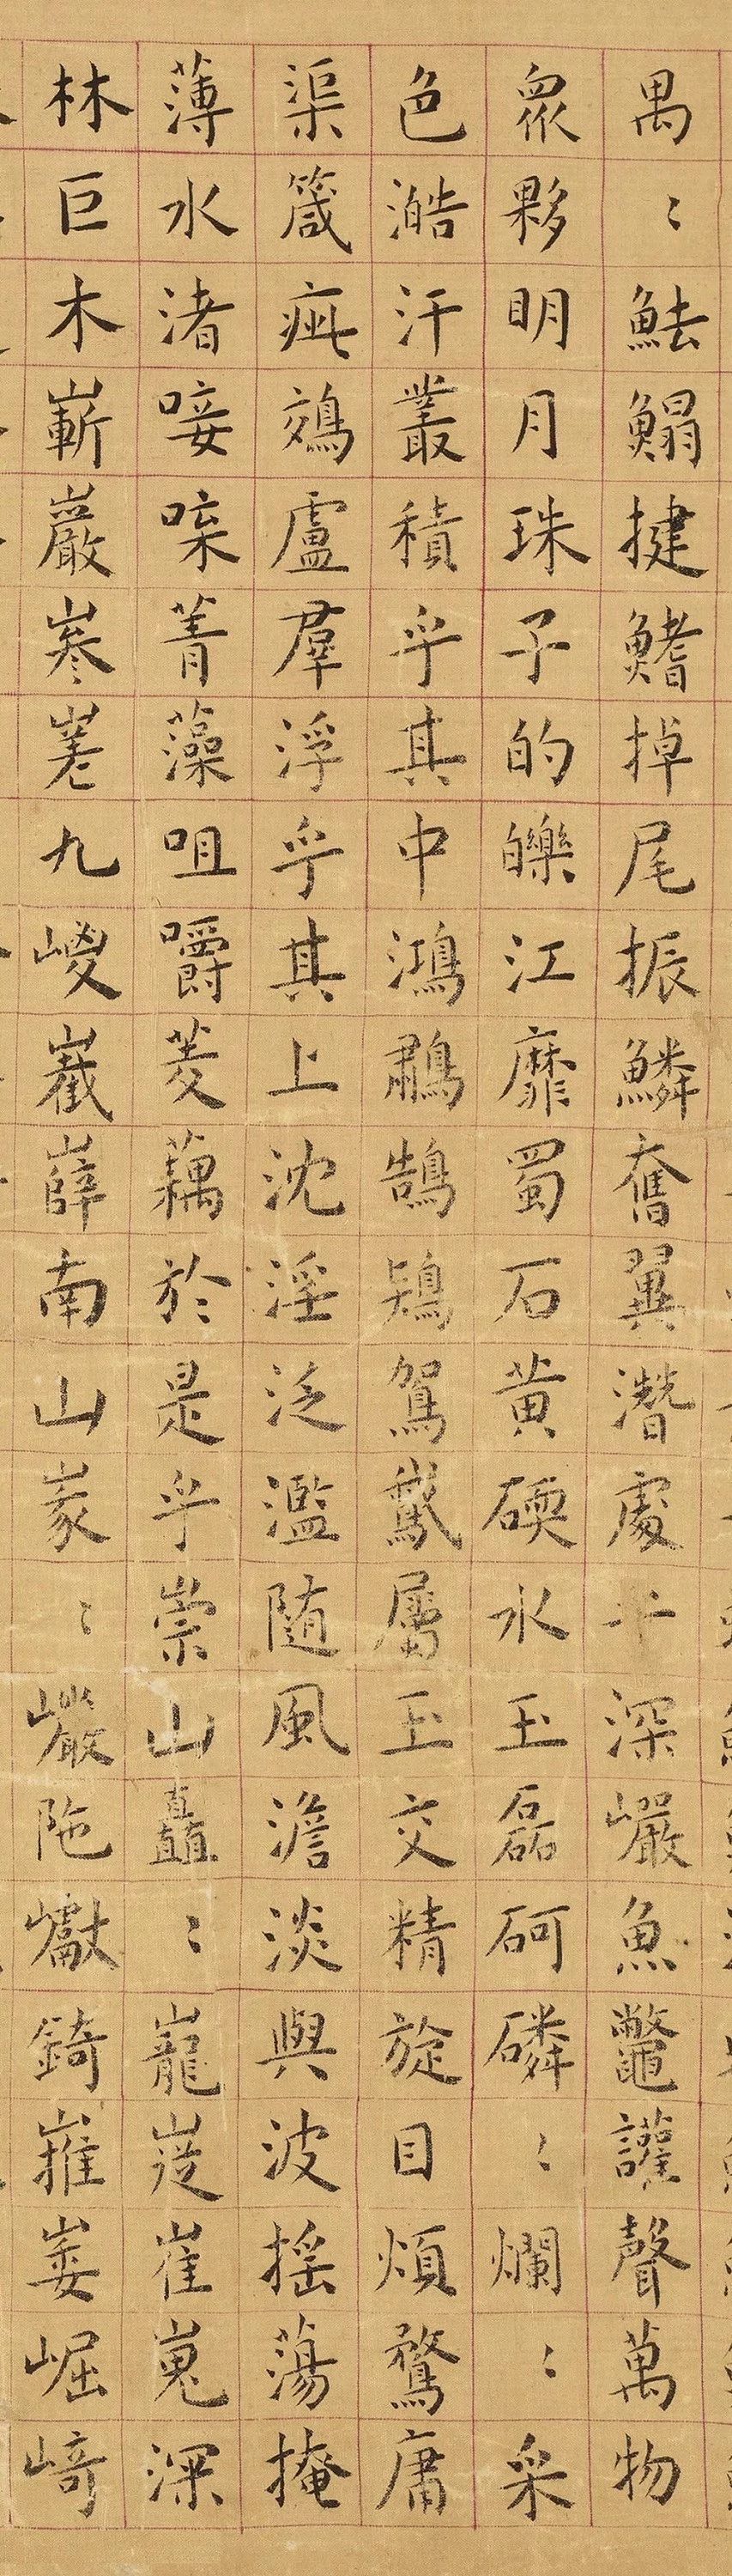 禺〻魼鰨揵鰭掉尾振鱗奮翼潛處乎深巖魚鼈讙聲萬物
衆夥明月珠子的皪江靡蜀石黄碝水玉磊砢磷〻爛〻采
色澔汗叢積乎其中鴻鷫鵠鴇鴐鵞屬玉交精旋目煩鶩庸
渠箴疵鵁盧羣浮乎其上沈淫泛濫随風澹淡與波摇蕩掩
薄水渚唼喋菁藻咀嚼菱藕於是乎崇山矗〻巃嵸崔嵬深
林巨木嶄巖嵾嵳九嵕嶻嶭南山峩〻巖陁甗錡嶊崣崛崎